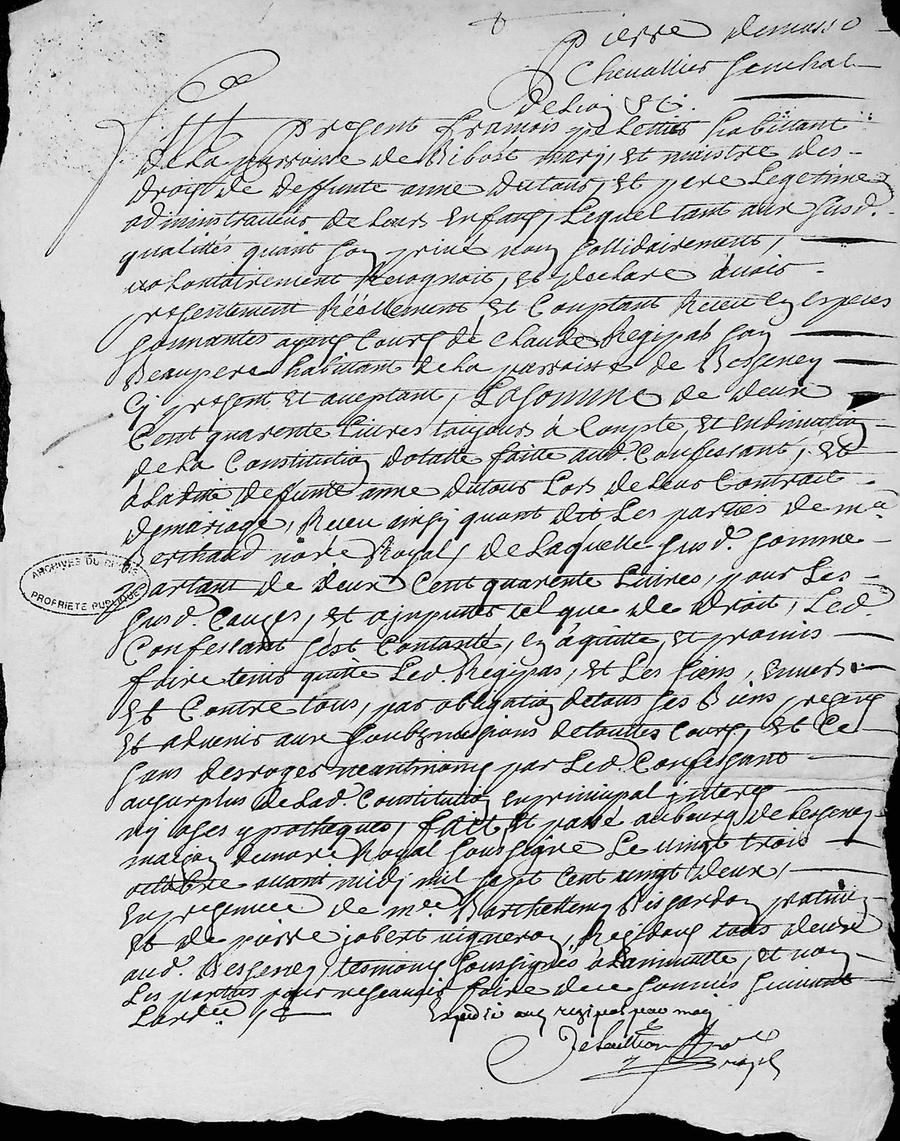 Pierre demasso
Chevallier Seneschal
de Lion &c.
Fut Present françois habitant
de La parroisse de Bibost mary, et maistre des
droits de deffunte anne dutous, et pere Legetime
administrateur de Leurs Enfans, Lequel tant aux susd.
qualittes quant son privé nom sollidairement,
volontairement Recognoit, et declare avoir
presentement Réellement, et Comptant Receu en especes
sonnantes ayans Cours de Claude Regipas son
Beaupere habitant de La parroisse de Bessenay
Cy present et aceptant, La Somme de deux
Cent quarente Livres toujours à Compte, et En diminution
de La Constitution dotalle faitte aud. Confessant, et
à Laditte deffunte anne dutous Lors de Leur Contrait
de mariage, Receu ainsy quont dit Les parties de me
Berthaud no.re Royal, de Laquelle susd. somme
partant de deux Cent quarente Livres, pour Les
susd. Causes, et a jmputer tel que de droit, Led.
Confessant sest Contanté, en a quitté, et promis
faire tenir quitte Led. Regipas, et Les siens, Envers
Et Contre tous, par obligation de tous ses Biens presens
Et advenir aux soubzmissions de touttes Cours, et Ce
sans desroger neantmoins par Led. Confessant
au surplus de Lad. Constitution En principal jnterest
ny ypotheques, fait et passé au bourg de Bessenay
maison de no.re Royal soussigné Le vingt trois
octobre avant midy mil sept Cent vingt deux,
En presence de me Barthellemy Bissardon praticien
Et de pierre jobert vigneron, Residans tous deux
aud. Bessenay tesmoins soussignés à La minutte, et non
Les parties pour ne scavoir faire de ce sommés suivant
L'ordce
Expedié aud regipas par moy